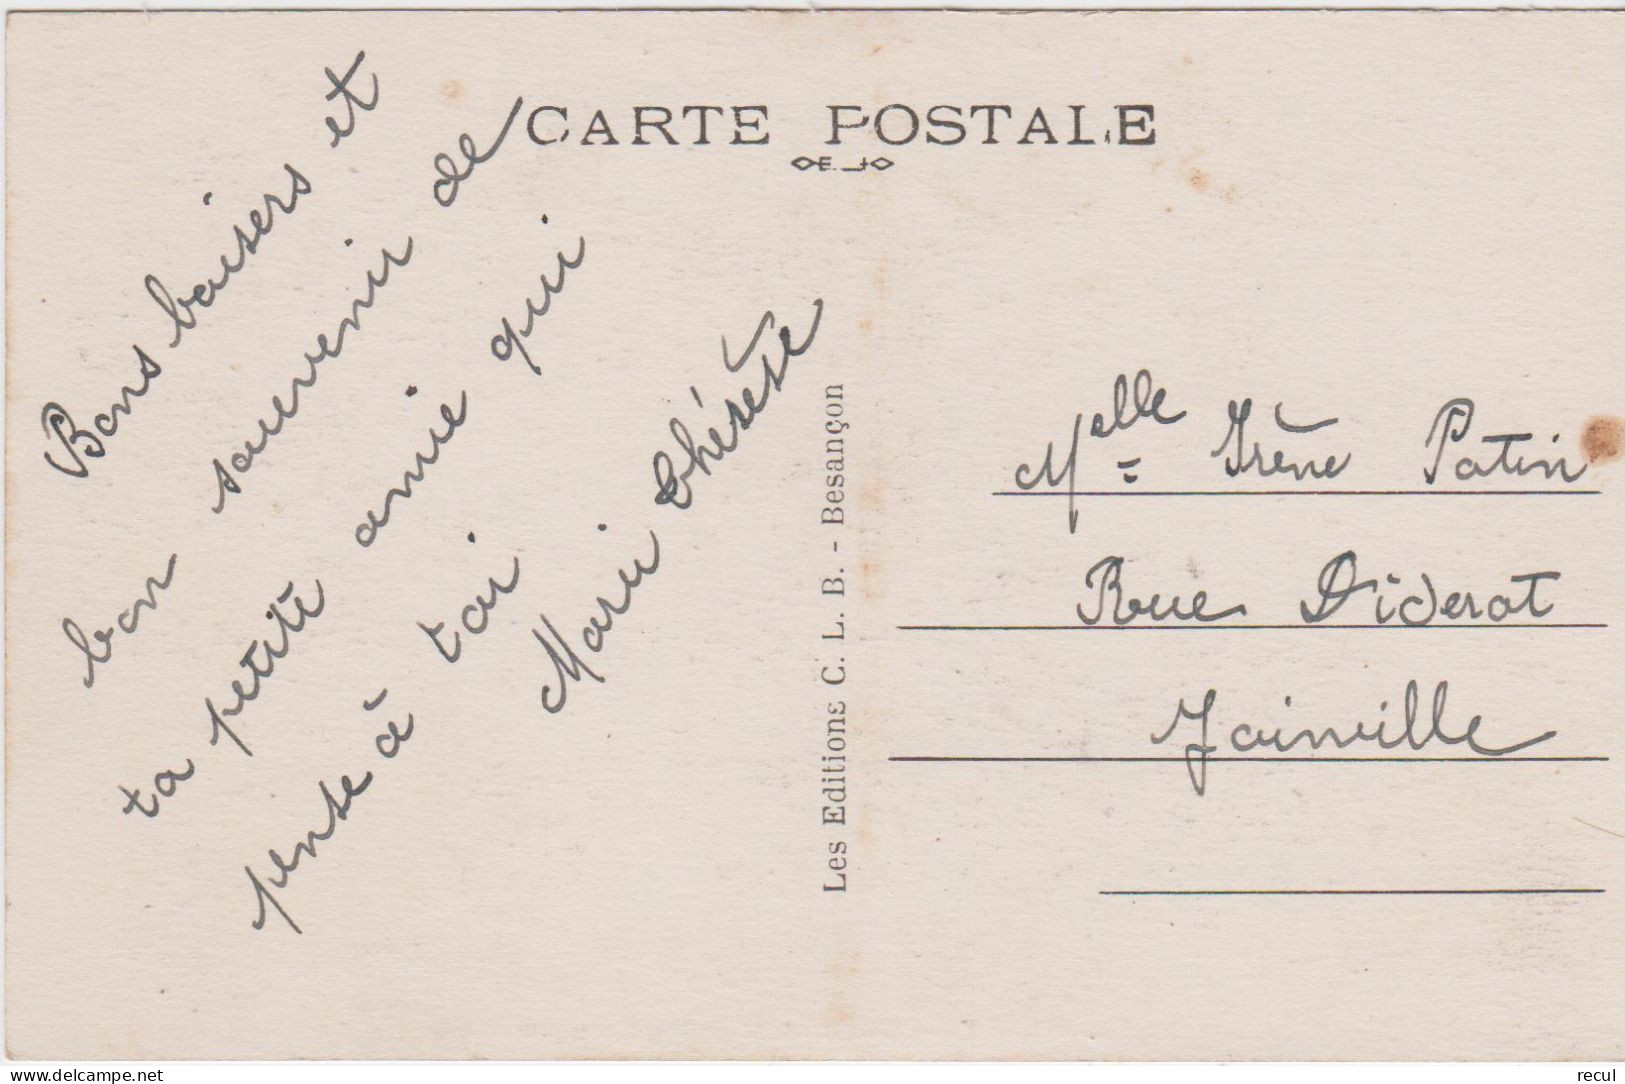 CARTE POSTALE
Bons baisers et
bon souvenir de
ta petite amie qui
pense à toi
Marie Thérèse
Les Editions C. L. B. - Besançon
Melle Irène Patin
Rue Diderot
Joinville
www.delcampe.net
recul